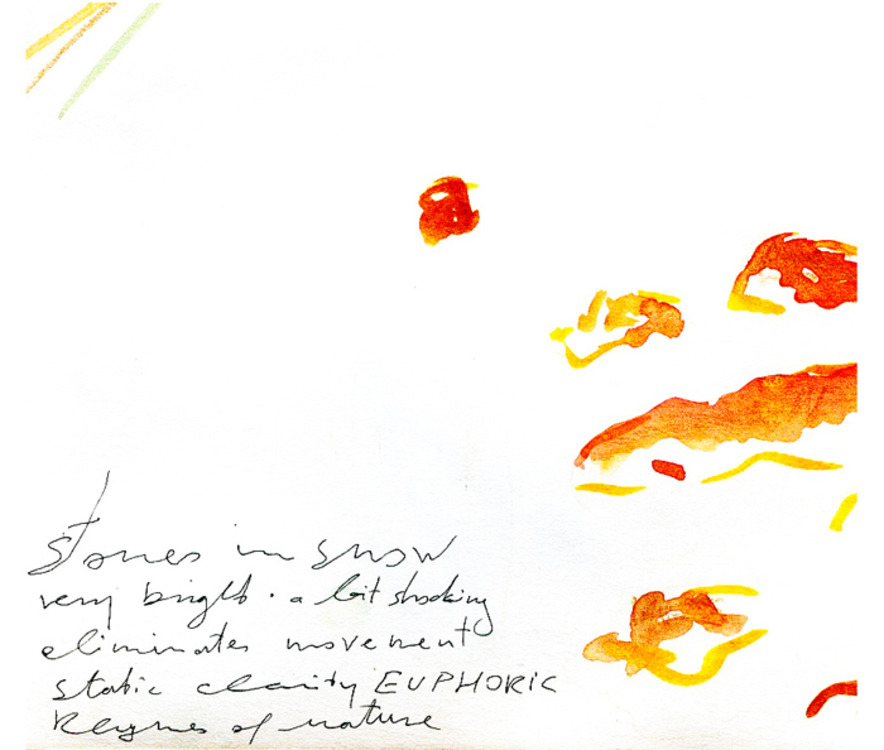 stones in snow
very bright. a bit shocking
eliminates movement
static clarity EUPHORIC
Rhymes of nature